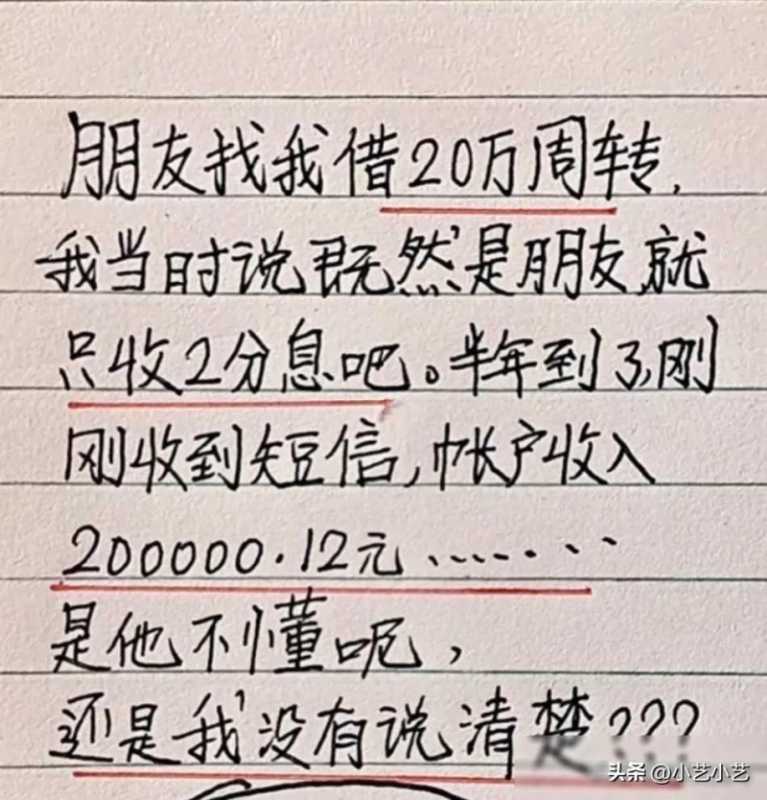 朋友找我借20万周转,
我当时说既然是朋友,就
只收2分息吧。半年到了,刚
刚收到短信,帐户收入
200000.12元.........
是他不懂呢,
还是我没有说清楚???
头条 @小艺小艺